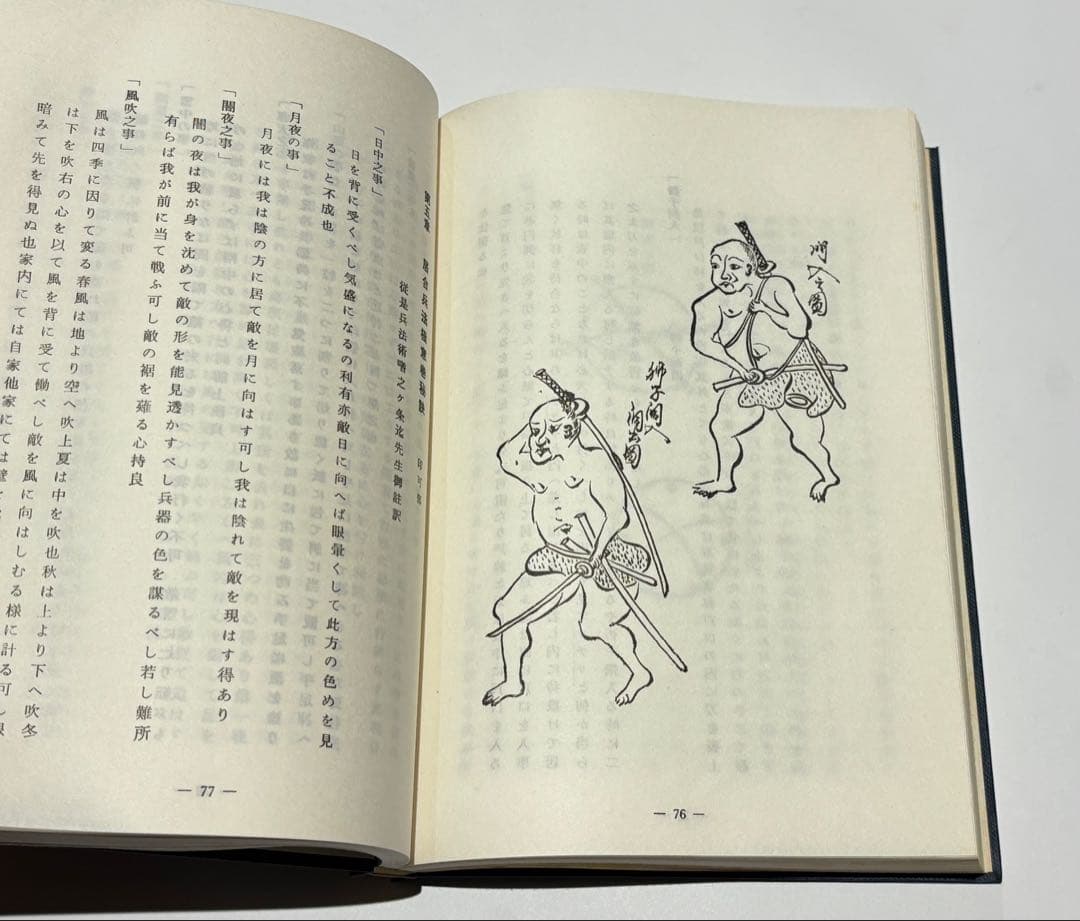 門入之圖
獅子洞入
洞出圖
— 76 —
第五章　居合兵法極意巻秘訣　印可部
従是兵法術嗜之ヶ条迄先生御註訳
「日中之事」
日を背に受くべし気盛になるの利有亦敵日に向へば眼暈くして此方の色めを見
ること不成也
「月夜の事」
月夜には我は陰の方に居て敵を月に向はす可し我は陰れて敵を現はす得あり
「闇夜之事」
闇の夜は我が身を沈めて敵の形を能見透かすべし兵器の色を謀るべし若し難所
有らば我が前に当て戦ふ可し敵の裾を薙る心持良
「風吹之事」
風は四季に因りて変る春風は地より空へ吹上夏は中を吹也秋は上より下へ吹冬
は下を吹右の心を以て風を背に受て働べし敵を風に向はしむる様に計る可し眼
暗みて先を得見ぬ也家内にては自家他家にては壁
— 77 —